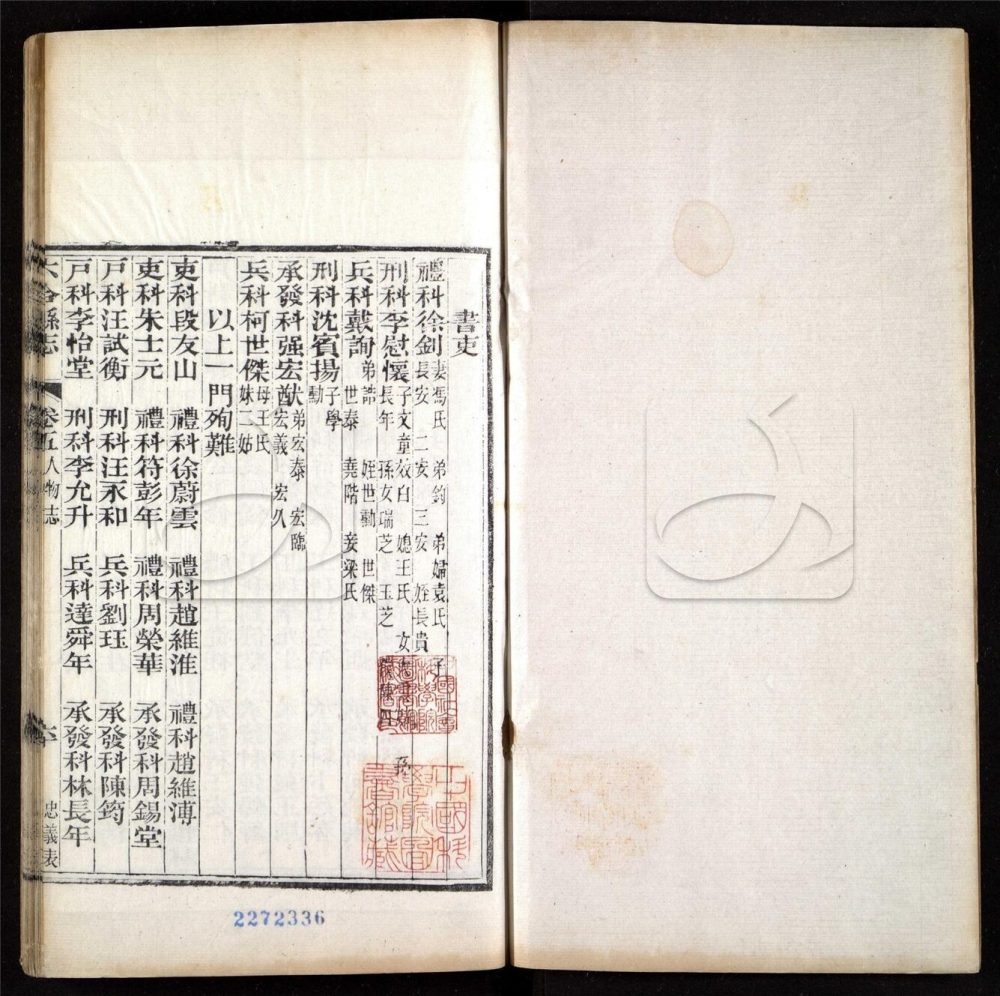 書吏
禮科徐釗 妻馮氏 弟鈞 弟婦袁氏 子
長安 二安 三安 姪長貴
刑科李慰懷 子文童效白 媳王氏 女
長年 孫女瑞芝 玉芝
兵科戴詢 弟誥 姪世勳 世傑
世泰 堯階 妾梁氏
刑科沈賓揚 子學
勳
承發科强宏猷 弟宏泰 宏臨
宏義 宏久
兵科柯世傑 母王氏
妹二姑
以上一門殉難
吏科段友山 禮科徐蔚雲 禮科趙維淮 禮科趙維溥
吏科朱士元 禮科符彭年 禮科周榮華 承發科周錫堂
戶科汪試衡 刑科汪永和 兵科劉珏 承發科陳筠
戶科李怡堂 刑科李允升 兵科達舜年 承發科林長年
六合縣志 卷五人物志 忠義表
中國科學院圖書館藏
2272336